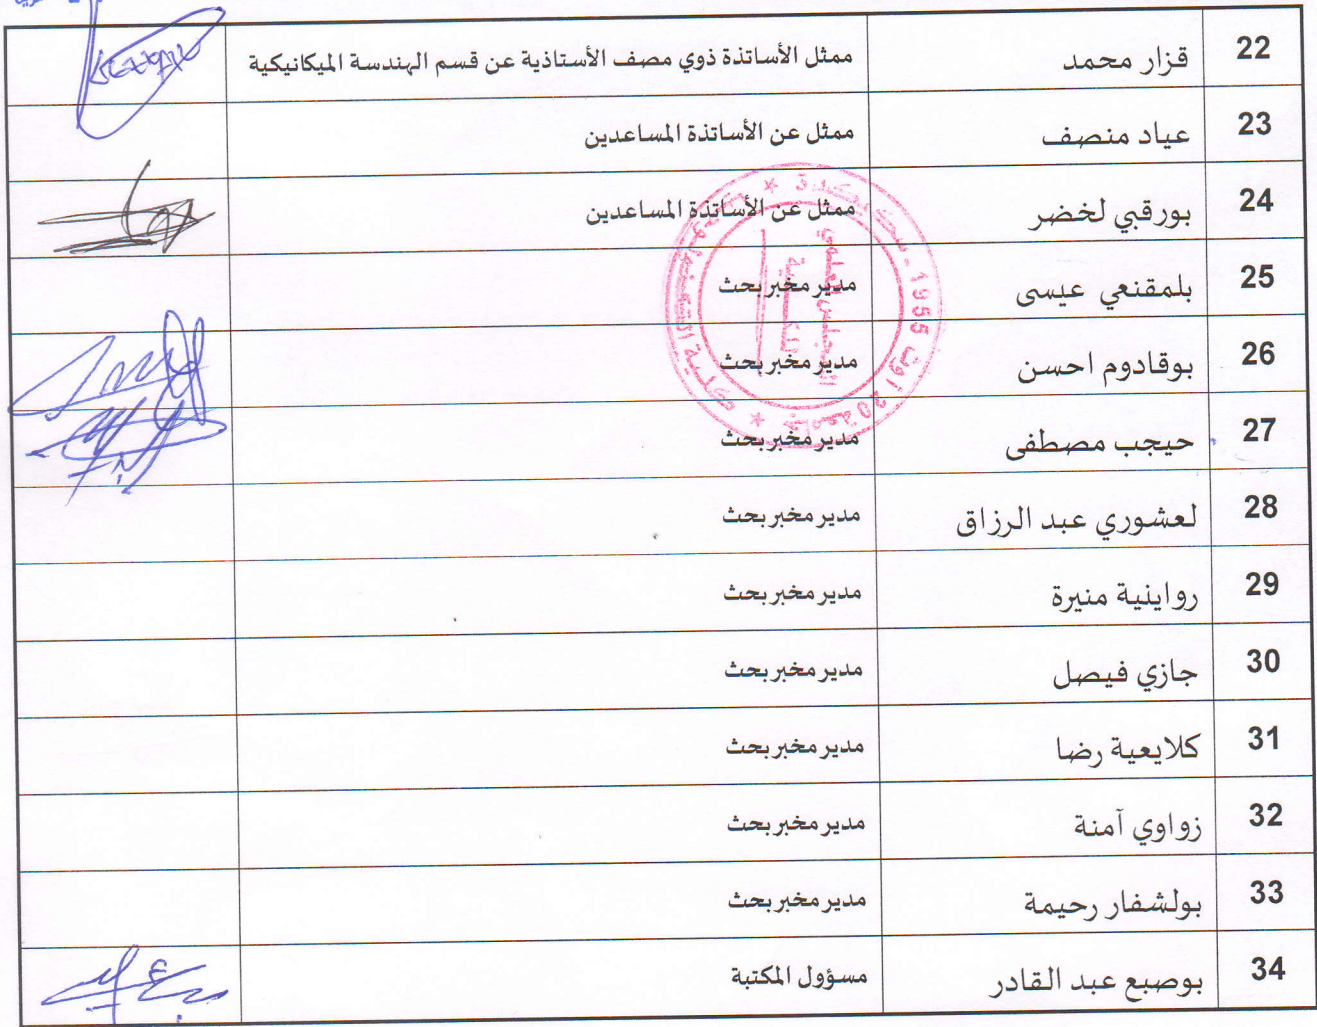 22 قزار محمد ممثل الأساتذة ذوي مصف الأستاذية عن قسم الهندسة الميكانيكية
23 عياد منصف ممثل عن الأساتذة المساعدين
24 بورقبي لخضر ممثل عن الأساتذة المساعدين
25 بلمقنعي عيسى مدير مخبر بحث
26 بوقادوم احسن مدير مخبر بحث
27 حيجب مصطفى مدير مخبر بحث
28 لعشوري عبد الرزاق مدير مخبر بحث
29 رواينية منيرة مدير مخبر بحث
30 جازي فيصل مدير مخبر بحث
31 كلايعية رضا مدير مخبر بحث
32 زواوي آمنة مدير مخبر بحث
33 بولشفار رحيمة مدير مخبر بحث
34 بوصبع عبد القادر مسؤول المكتبة
جامعة 20 أوت 1955 - سكيكدة
المجلس العلمي
للكلية